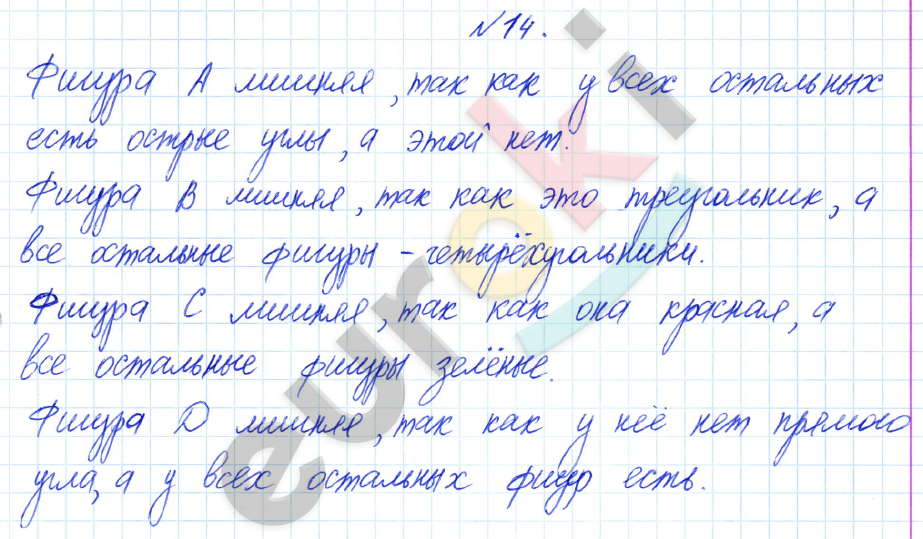 №14.
Фигура А лишняя, так как у всех остальных
есть острые углы, а этой нет.
Фигура В лишняя, так как это треугольник, а
все остальные фигуры - четырёхугольники.
Фигура С лишняя, так как она красная, а
все остальные фигуры зелёные.
Фигура D лишняя, так как у неё нет прямого
угла, а у всех остальных фигур есть.
euroki